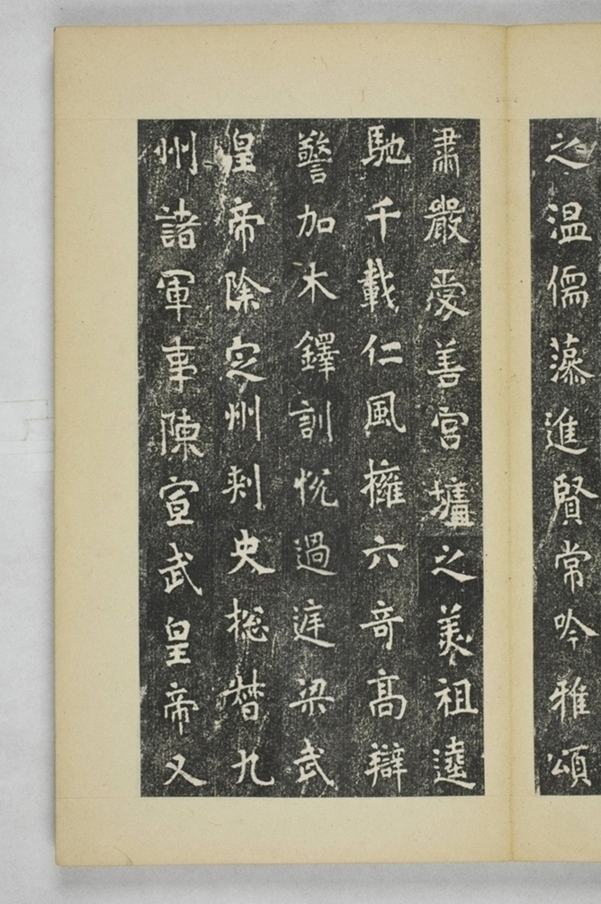 之温儒藻進賢常吟雅頌
肅嚴愛善宫壚之美祖逵
馳千載仁風擁六奇高辯
警加木鐸訓恱過庭梁武
皇帝除定州刺史揔督九
州諸軍事陳宣武皇帝又